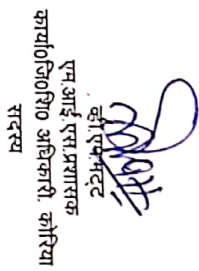 डी.एफ.भट्ट
एम.आई.एस.प्रशासक
कार्या0जि0शि0 अधिकारी, कोरिया
सदस्य